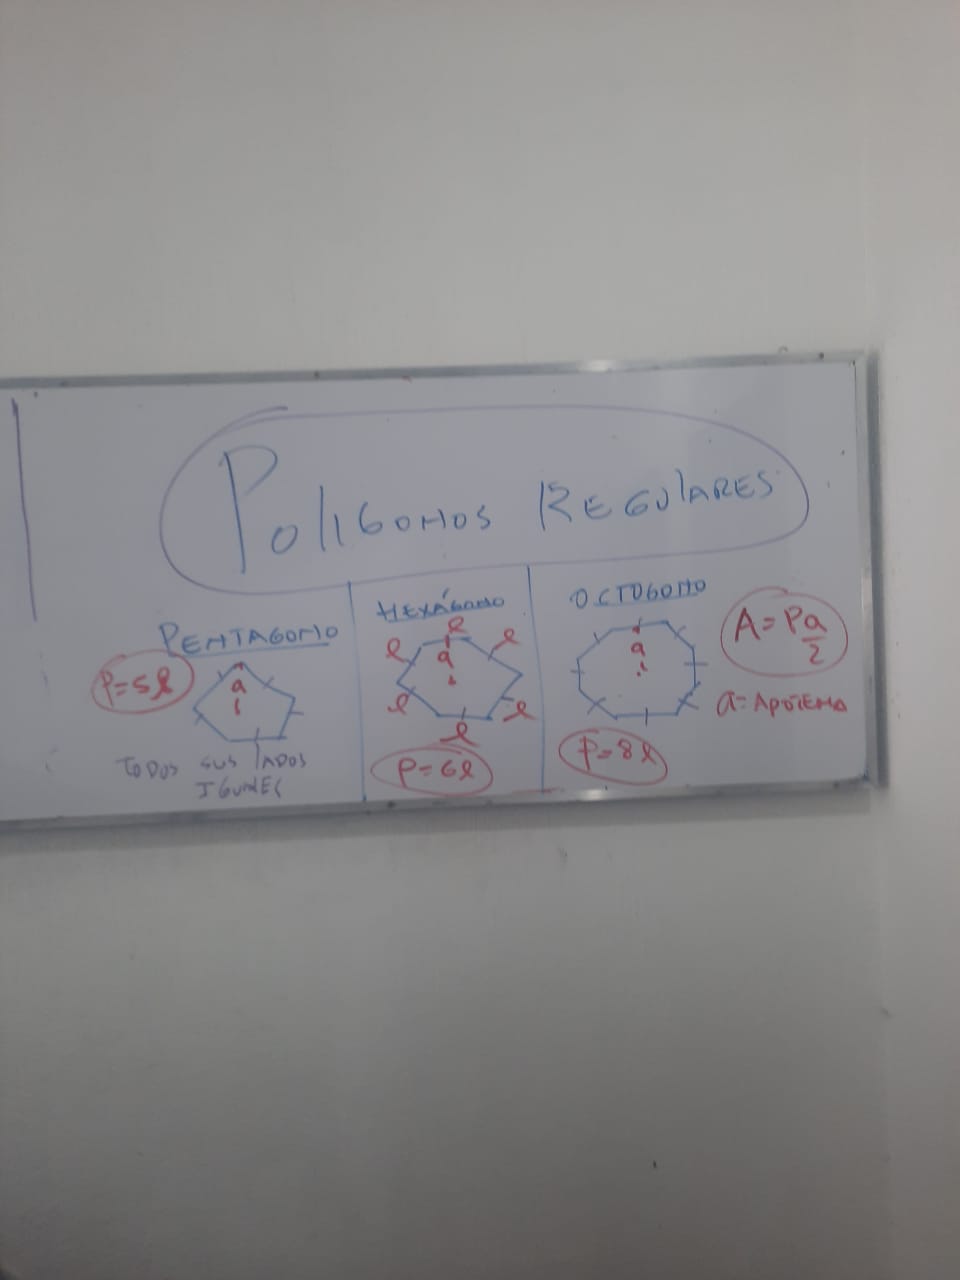 POLIGONOS REGULARES
PENTAGONO
P=5l
a
TODOS SUS LADOS
IGUALES
HEXÁGONO
l
l
l
a
l
l
l
P=6l
OCTOGONO
a
P=8l
A=Pa/2
a=APOTEMA